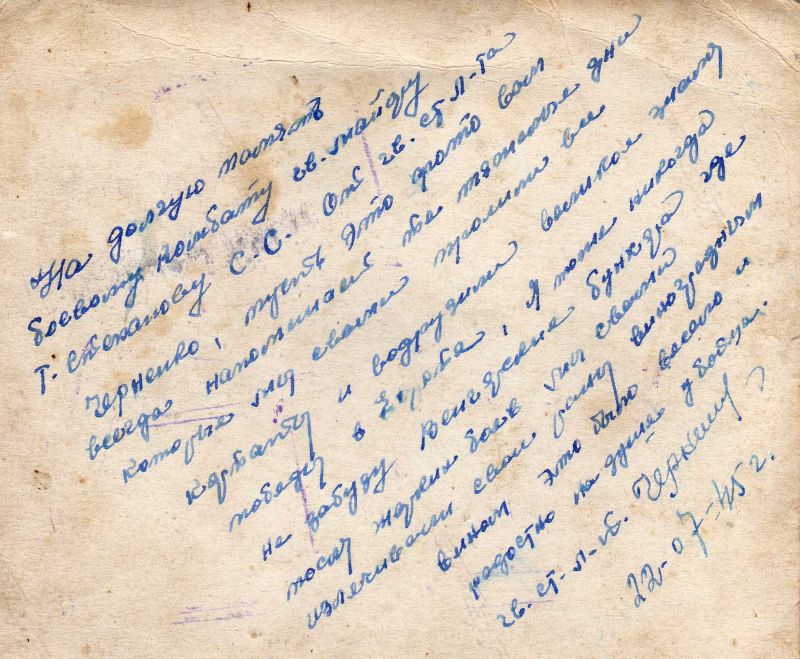 На долгую память
боевому комбату гв. майору
т. Стеканову С.С. От гв. ст. л-та
Черненко, пусть это фото вам
всегда напоминает те тяжелые дни
которые мы своими прошли все
карпаты и водрузили великое знамя
победы в, я тоже никогда
не забуду Венгерские бункера где
после жарких боев мы своими
излечивали свои раны виноградным
вином это было весело и
радостно на душе у бойца.
гв. ст. л-т. Черненко
22-07-45 г.